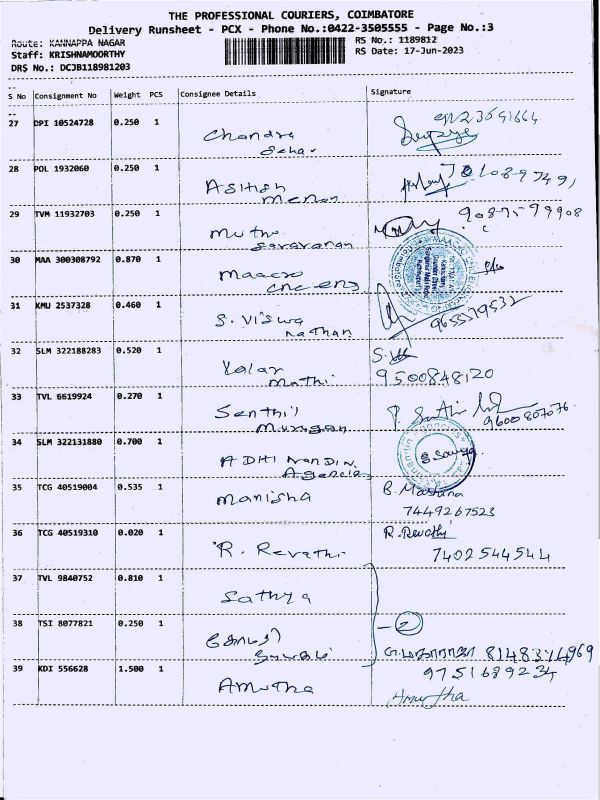 THE PROFESSIONAL COURIERS, COIMBATORE
Delivery Runsheet - PCX - Phone No.:0422-3505555 - Page No.:3
Route: KANNAPPA NAGAR RS No.: 1189812
Staff: KRISHNAMOORTHY RS Date: 17-Jun-2023
DRS No.: DCJB118981203
S No Consignment No Weight PCS Consignee Details Signature
27 DPI 10524728 0.250 1 Chandra
Sehar
28 POL 1932060 0.250 1 Ashish
Menon
29 TVM 11932703 0.250 1 Muthu
Saravanan
30 MAA 300308792 0.870 1 Maacro
cnc eng
31 KMU 2537328 0.460 1 S. Viswa
nathan 9655579532
32 SLM 322188283 0.520 1 Kalai
Mathi 9500848120
33 TVL 6619924 0.270 1 Senthil
Murugan 9600807076
34 SLM 322131880 0.700 1 ADHI Nandin
Agencies
35 TCG 40519004 0.535 1 Manisha
7449267523
36 TCG 40519310 0.020 1 R. Revathi R. Revathi
7402544544
37 TVL 9840752 0.810 1 Sathya
38 TSI 8077821 0.250 1 கோமதி 2
8148374969
39 KDI 556628 1.500 1 Amutha 9751689234
Amutha